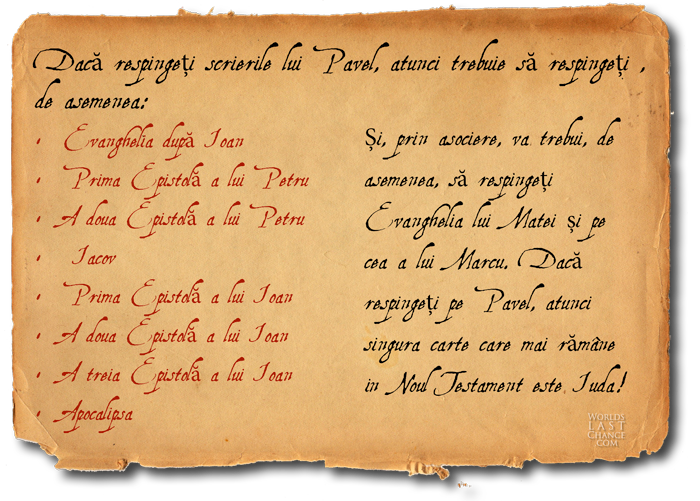 Dacă respingeți scrierile lui Pavel, atunci trebuie să respingeți ,
de asemenea:
• Evanghelia după Ioan
• Prima Epistolă a lui Petru
• A doua Epistolă a lui Petru
• Iacov
• Prima Epistolă a lui Ioan
• A doua Epistolă a lui Ioan
• A treia Epistolă a lui Ioan
• Apocalipsa
Și, prin asociere, va trebui, de
asemenea, să respingeți
Evanghelia lui Matei și pe
cea a lui Marcu. Dacă
respingeți pe Pavel, atunci
singura carte care mai rămâne
in Noul Testament este Iuda!
WORLDS
LAST
CHANCE
.COM